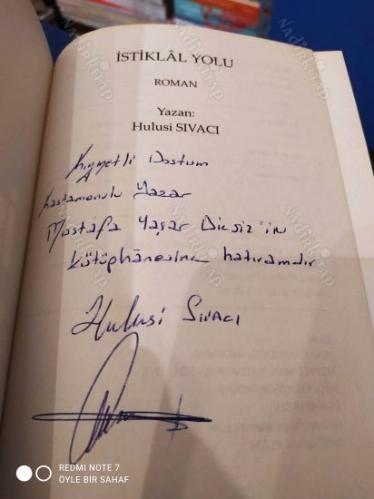 İSTİKLÂL YOLU
ROMAN
Yazan:
Hulusi SIVACI
Kıymetli Dostum
Kastamonulu Yazar
Mustafa Yaşar Dilsiz'in
kütüphanesine hatıramdır
Hulusi SIVACI
REDMI NOTE 7
ÖYLE BİR SAHAF
nadirkitap